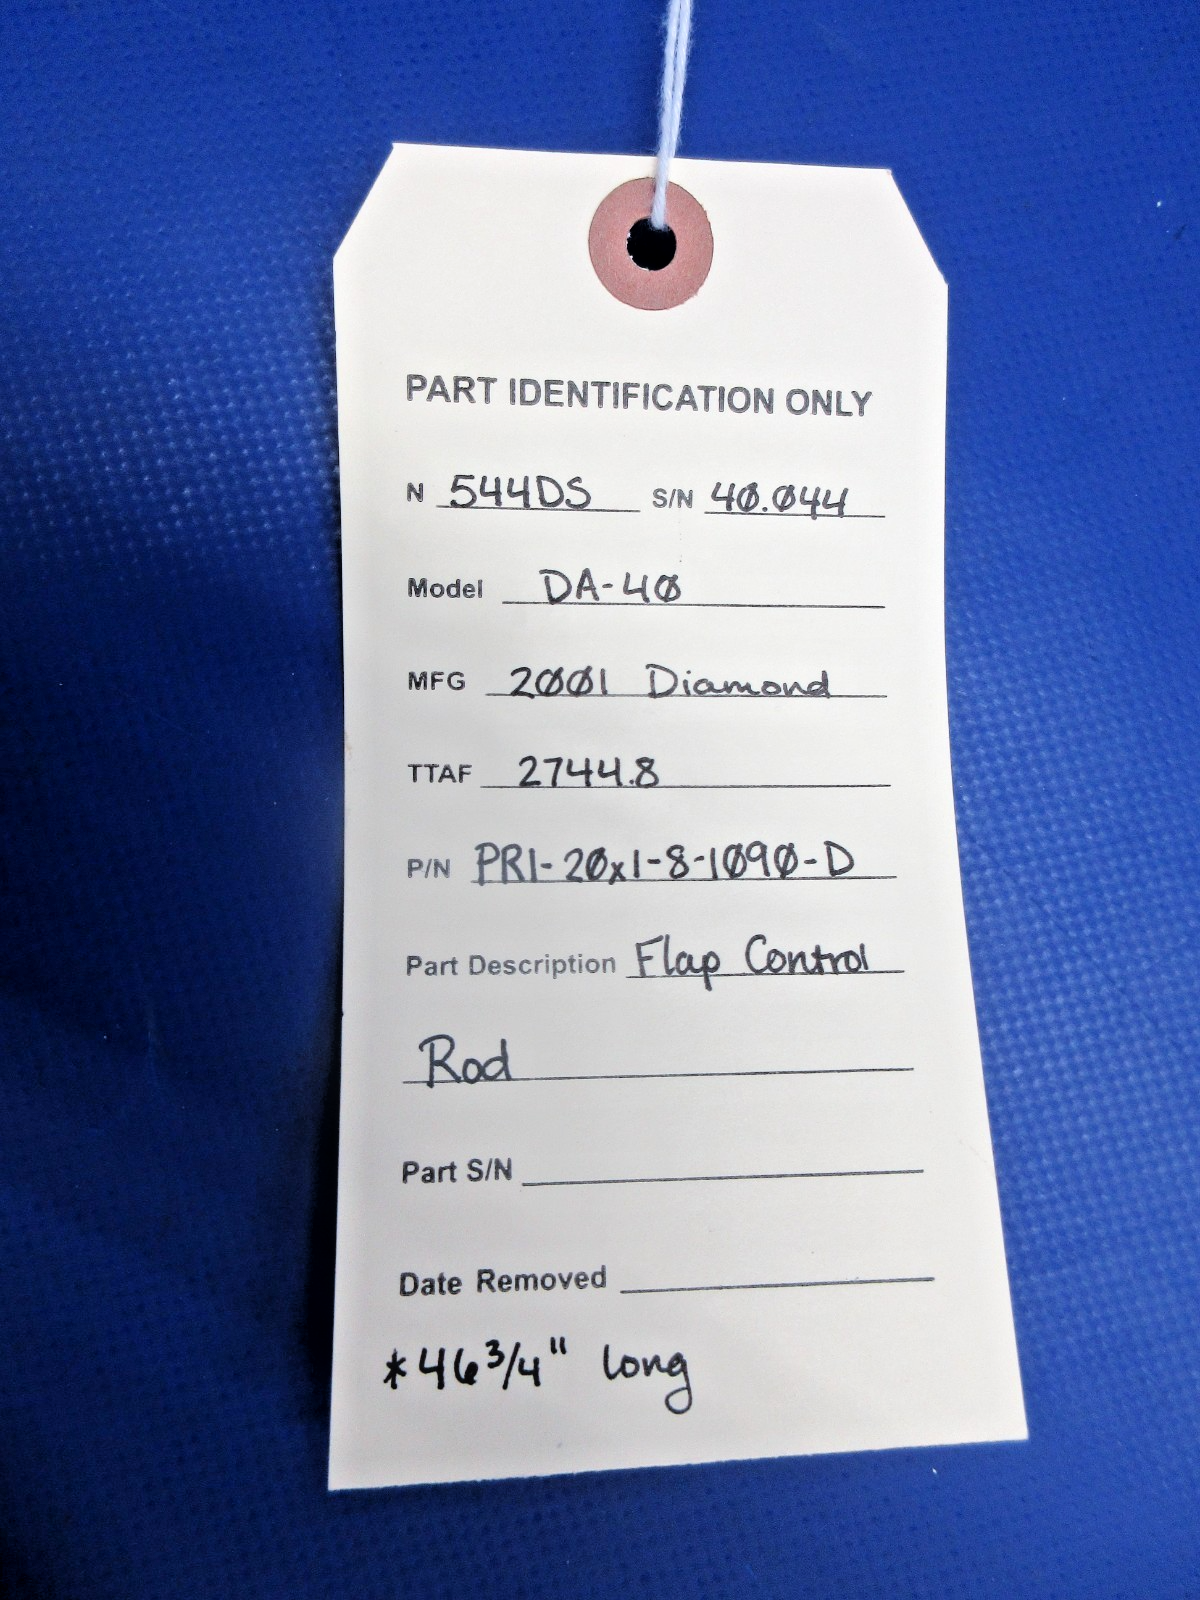 PART IDENTIFICATION ONLY
N 544DS S/N 40.044
Model DA-40
MFG 2001 Diamond
TTAF 2744.8
P/N PR1-20x1-8-1090-D
Part Description Flap Control
Rod
Part S/N
Date Removed
*46 3/4" long